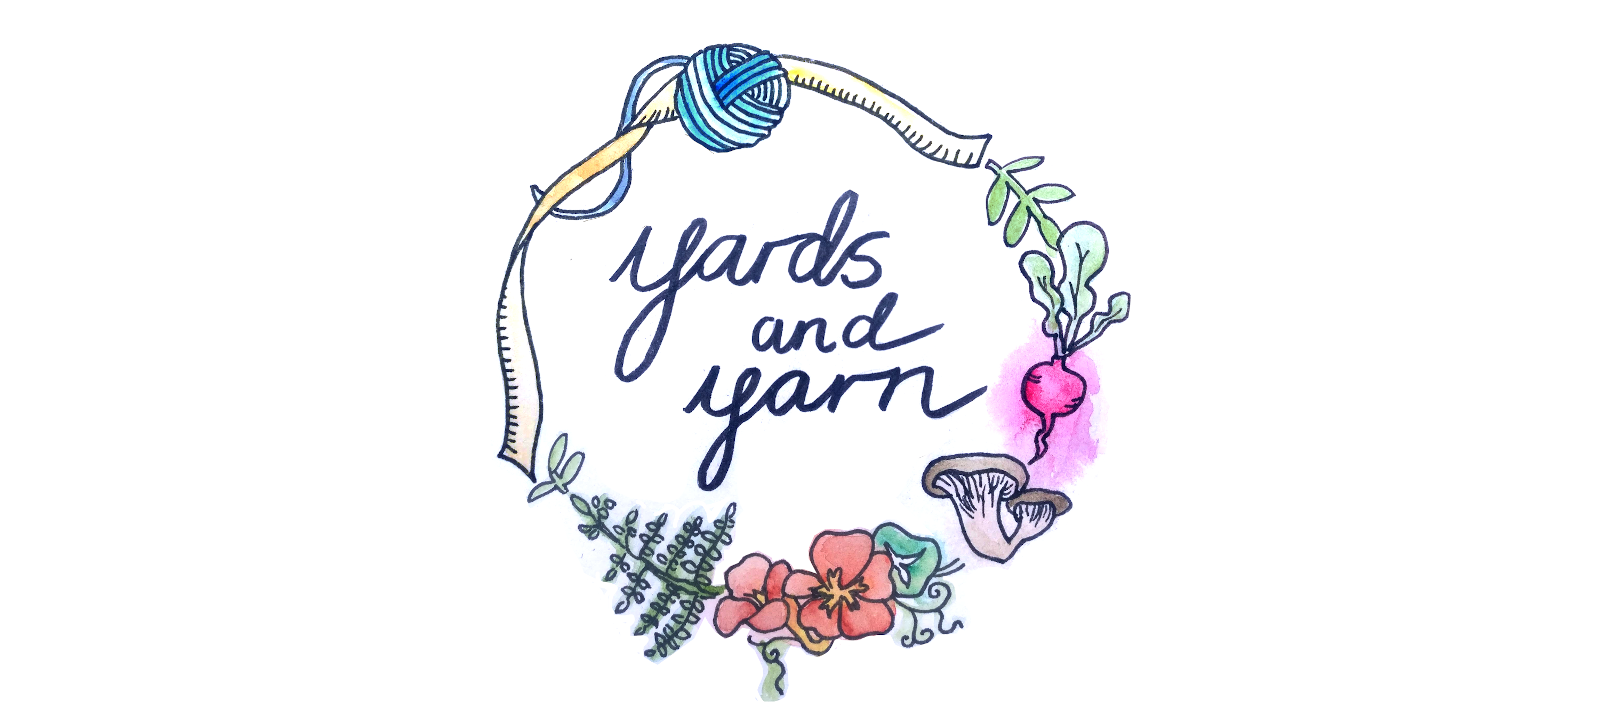 yards
and
yarn